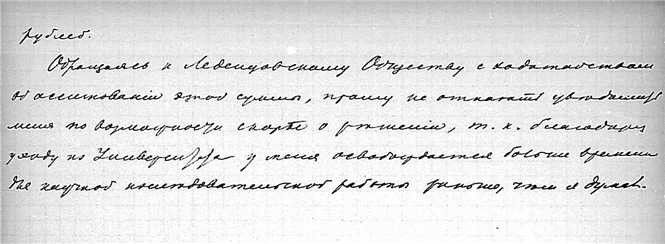 рублей.
Обращаясь к Леденцовскому Обществу с ходатайством
об ассигновании этой суммы, прошу не отказать уведомить
меня по возможности скорѣе о рѣшеніи, т. к. благодаря
уходу из Университета у меня освобождается больше времени
для научной изслѣдовательской работы раньше, чѣм я думал.